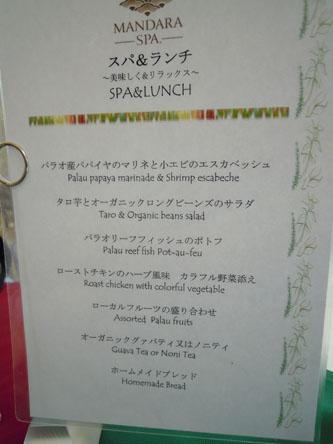 MANDARA
SPA
スパ&ランチ
～美味しく&リラックス～
SPA&LUNCH
パラオ産パパイヤのマリネと小エビのエスカベッシュ
Palau papaya marinade & Shrimp escabeche
タロ芋とオーガニックロングビーンズのサラダ
Taro & Organic beans salad
パラオリーフフィッシュのポトフ
Palau reef fish Pot-au-feu
ローストチキンのハーブ風味　カラフル野菜添え
Roast chicken with colorful vegetable
ローカルフルーツの盛り合わせ
Assorted Palau fruits
オーガニックグァバティ又はノニティ
Guava Tea or Noni Tea
ホームメイドブレッド
Homemade Bread